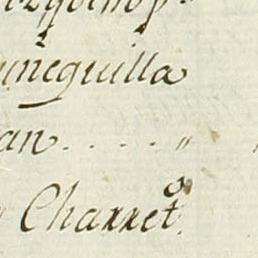 uñeguilla
an..... "
" Charret.º